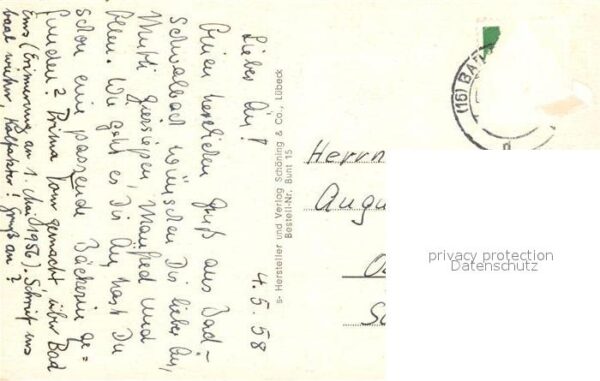 4.5.58
Lieber Au!
Einen herzlichen Gruß aus Bad-
Schwalbach wünschen Dir lieber Au,
Mutti, Manfred und
Wie geht es Dir Au, hast Du
schon eine passende Bäckerin ge=
funden? Prima Tour gemacht über Bad
Ems (Erinnerung an 1. Mai 1956). Schreib uns
bald wieder, Gruß an ?
s- Hersteller und Verlag Schöning & Co., Lübeck
Bestell-Nr. Bunt 15
(16) BA
Herrn
Augu
privacy protection
Datenschutz